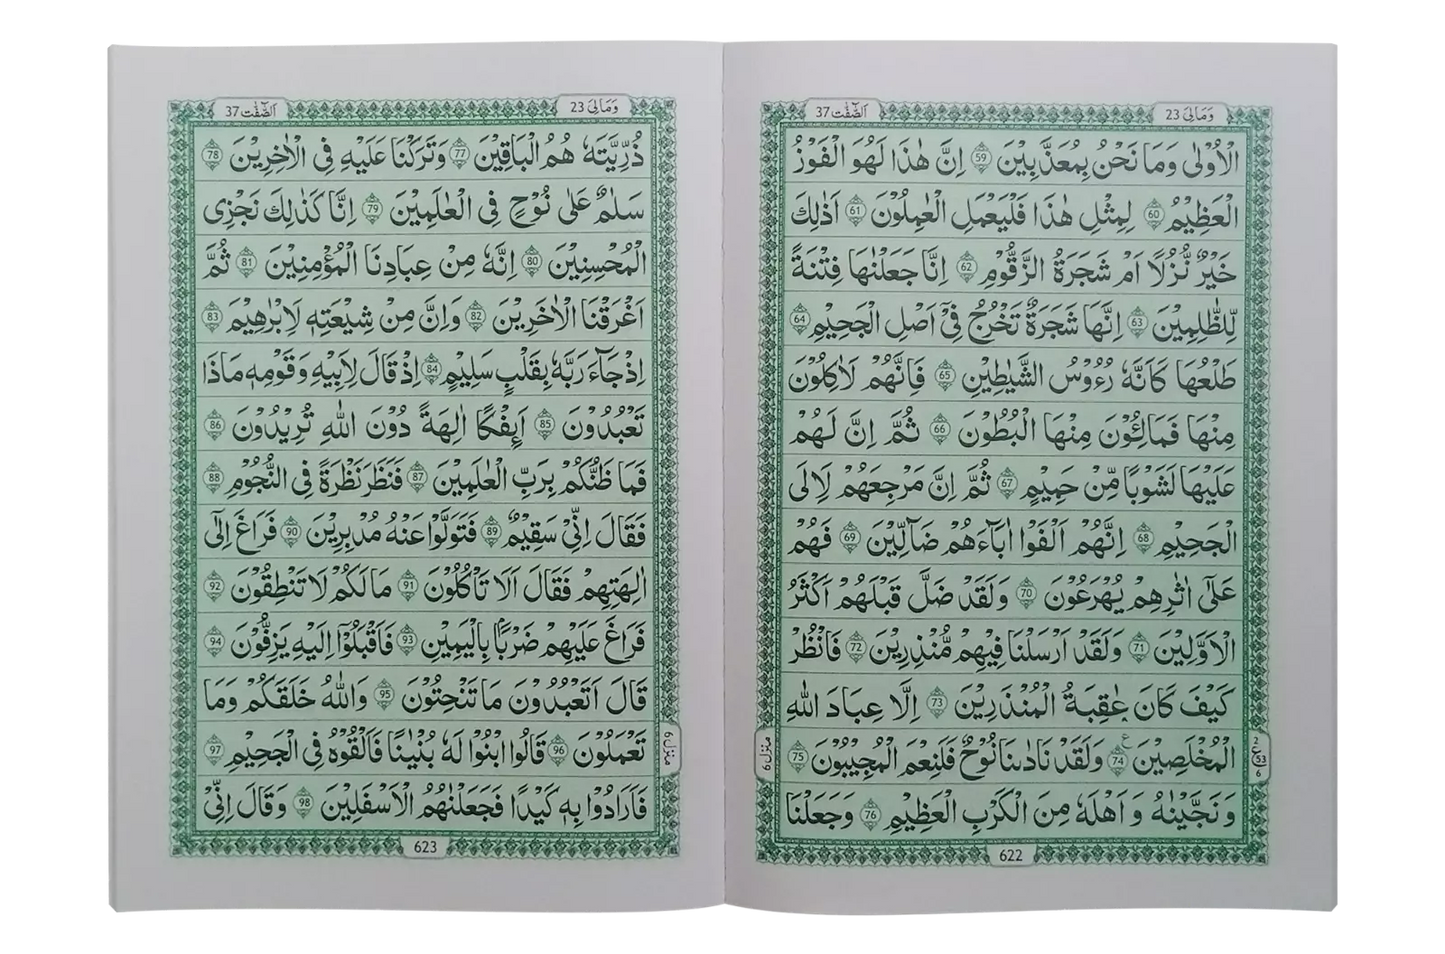 وَمَالِیَ 23
اَلصّٰٓفّٰت 37
الْاُوْلٰی وَمَا نَحْنُ بِمُعَذَّبِیْنَ 59 اِنَّ هٰذَا لَهُوَ الْفَوْزُ
الْعَظِیْمُ 60 لِمِثْلِ هٰذَا فَلْیَعْمَلِ الْعٰمِلُوْنَ 61 اَذٰلِكَ
خَیْرٌ نُّزُلًا اَمْ شَجَرَةُ الزَّقُّوْمِ 62 اِنَّا جَعَلْنٰهَا فِتْنَةً
لِّلظّٰلِمِیْنَ 63 اِنَّهَا شَجَرَةٌ تَخْرُجُ فِیْۤ اَصْلِ الْجَحِیْمِ 64
طَلْعُهَا كَاَنَّهٗ رُءُوْسُ الشَّیٰطِیْنِ 65 فَاِنَّهُمْ لَاٰكِلُوْنَ
مِنْهَا فَمَالِـُٔوْنَ مِنْهَا الْبُطُوْنَ 66 ثُمَّ اِنَّ لَهُمْ
عَلَیْهَا لَشَوْبًا مِّنْ حَمِیْمٍ 67 ثُمَّ اِنَّ مَرْجِعَهُمْ لَاِلَی
الْجَحِیْمِ 68 اِنَّهُمْ اَلْفَوْا اٰبَآءَهُمْ ضَآلِّیْنَ 69 فَهُمْ
عَلٰۤی اٰثٰرِهِمْ یُهْرَعُوْنَ 70 وَلَقَدْ ضَلَّ قَبْلَهُمْ اَكْثَرُ
الْاَوَّلِیْنَ 71 وَلَقَدْ اَرْسَلْنَا فِیْهِمْ مُّنْذِرِیْنَ 72 فَانْظُرْ
كَیْفَ كَانَ عٰقِبَةُ الْمُنْذَرِیْنَ 73 اِلَّا عِبَادَ اللّٰهِ
الْمُخْلَصِیْنَ 74 ع وَلَقَدْ نَادٰىنَا نُوْحٌ فَلَنِعْمَ الْمُجِیْبُوْنَ 75
وَنَجَّیْنٰهُ وَاَهْلَهٗ مِنَ الْكَرْبِ الْعَظِیْمِ 76 وَجَعَلْنَا
2
ع 53
6
منزل 6
622
وَمَالِیَ 23
اَلصّٰٓفّٰت 37
ذُرِّیَّتَهٗ هُمُ الْبَاقِیْنَ 77 وَتَرَكْنَا عَلَیْهِ فِی الْاٰخِرِیْنَ 78
سَلٰمٌ عَلٰی نُوْحٍ فِی الْعٰلَمِیْنَ 79 اِنَّا كَذٰلِكَ نَجْزِی
الْمُحْسِنِیْنَ 80 اِنَّهٗ مِنْ عِبَادِنَا الْمُؤْمِنِیْنَ 81 ثُمَّ
اَغْرَقْنَا الْاٰخَرِیْنَ 82 وَاِنَّ مِنْ شِیْعَتِهٖ لَاِبْرٰهِیْمَ 83
اِذْ جَآءَ رَبَّهٗ بِقَلْبٍ سَلِیْمٍ 84 اِذْ قَالَ لِاَبِیْهِ وَقَوْمِهٖ مَاذَا
تَعْبُدُوْنَ 85 اَىِٕفْكًا اٰلِهَةً دُوْنَ اللّٰهِ تُرِیْدُوْنَ 86
فَمَا ظَنُّكُمْ بِرَبِّ الْعٰلَمِیْنَ 87 فَنَظَرَ نَظْرَةً فِی النُّجُوْمِ 88
فَقَالَ اِنِّیْ سَقِیْمٌ 89 فَتَوَلَّوْا عَنْهُ مُدْبِرِیْنَ 90 فَرَاغَ اِلٰۤی
اٰلِهَتِهِمْ فَقَالَ اَلَا تَاْكُلُوْنَ 91 مَا لَكُمْ لَا تَنْطِقُوْنَ 92
فَرَاغَ عَلَیْهِمْ ضَرْبًۢا بِالْیَمِیْنِ 93 فَاَقْبَلُوْۤا اِلَیْهِ یَزِفُّوْنَ 94
قَالَ اَتَعْبُدُوْنَ مَا تَنْحِتُوْنَ 95 وَاللّٰهُ خَلَقَكُمْ وَمَا
تَعْمَلُوْنَ 96 قَالُوا ابْنُوْا لَهٗ بُنْیَانًا فَاَلْقُوْهُ فِی الْجَحِیْمِ 97
فَاَرَادُوْا بِهٖ كَیْدًا فَجَعَلْنٰهُمُ الْاَسْفَلِیْنَ 98 وَقَالَ اِنِّیْ
منزل 6
623